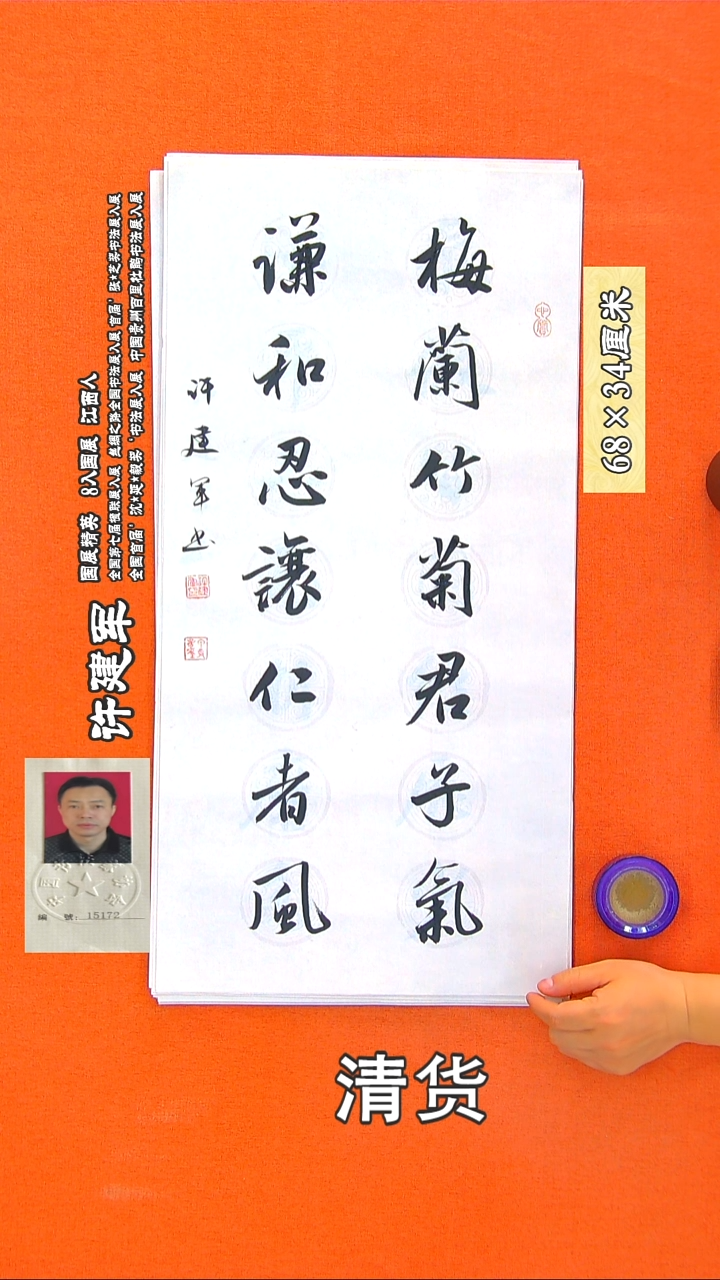 梅蘭竹菊君子氣
謙和忍讓仁者風
许建军书
68×34厘米
许建军
国展精英 8入国展 江西人
全国第七届楹联展入展
全国书法展入展
首届
书法展入展
全国首届
书法展入展
中国贵州百里杜鹃书法展入展
編 號: 15172
清货